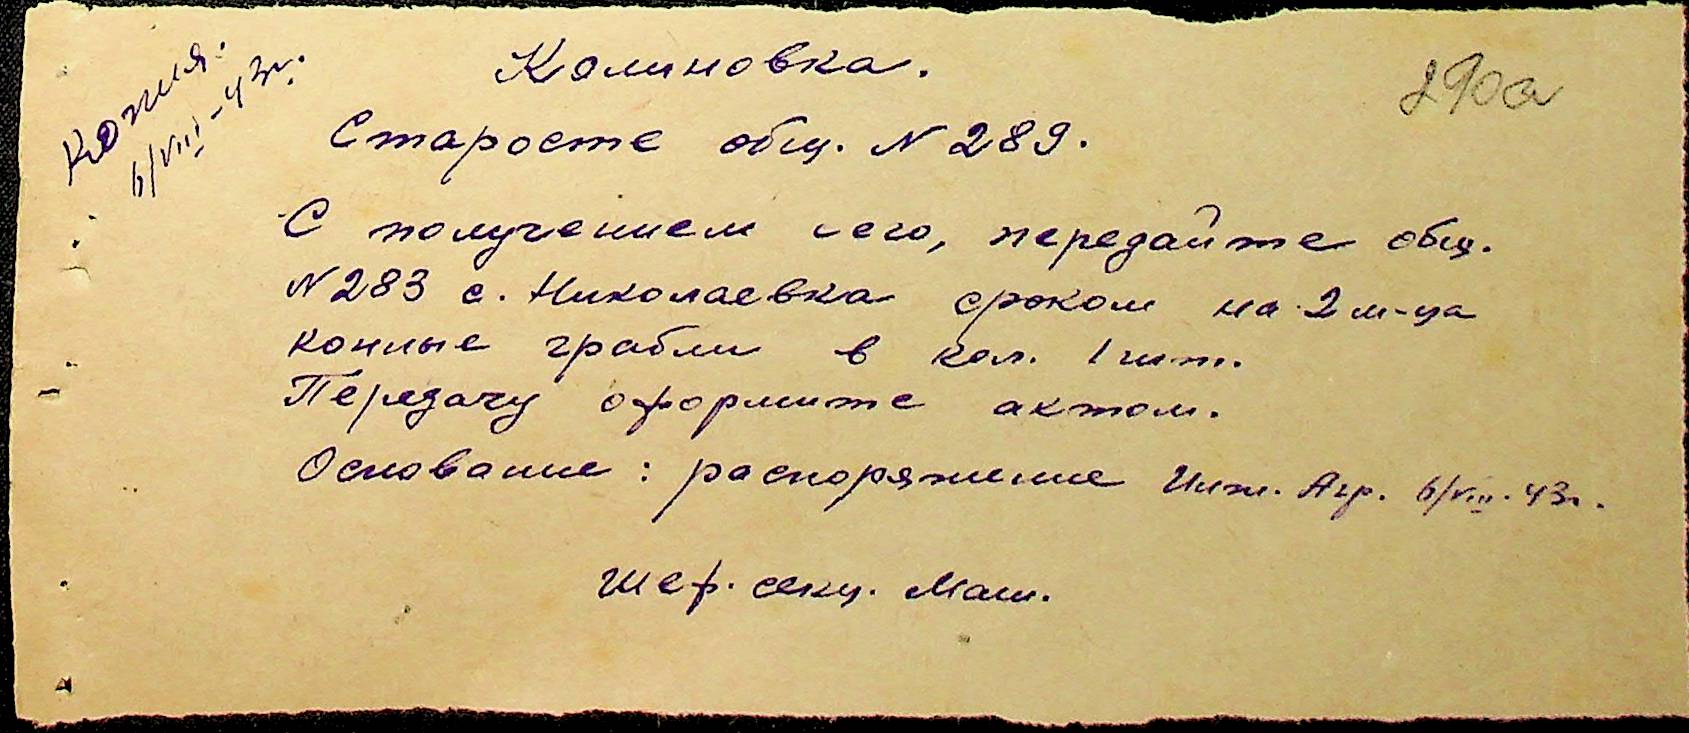 Копия:
6/VIII-43г.
Калиновка.
290а
Старосте общ. N 289.
С получением сего, передайте общ.
N 283 с. Николаевка сроком на 2 м-ца
конные грабли в кол. 1 шт.
Передачу оформите актом.
Основание: распоряжение Инж. Агр. 6/VIII. 43г.
Шеф. секц. Маш.